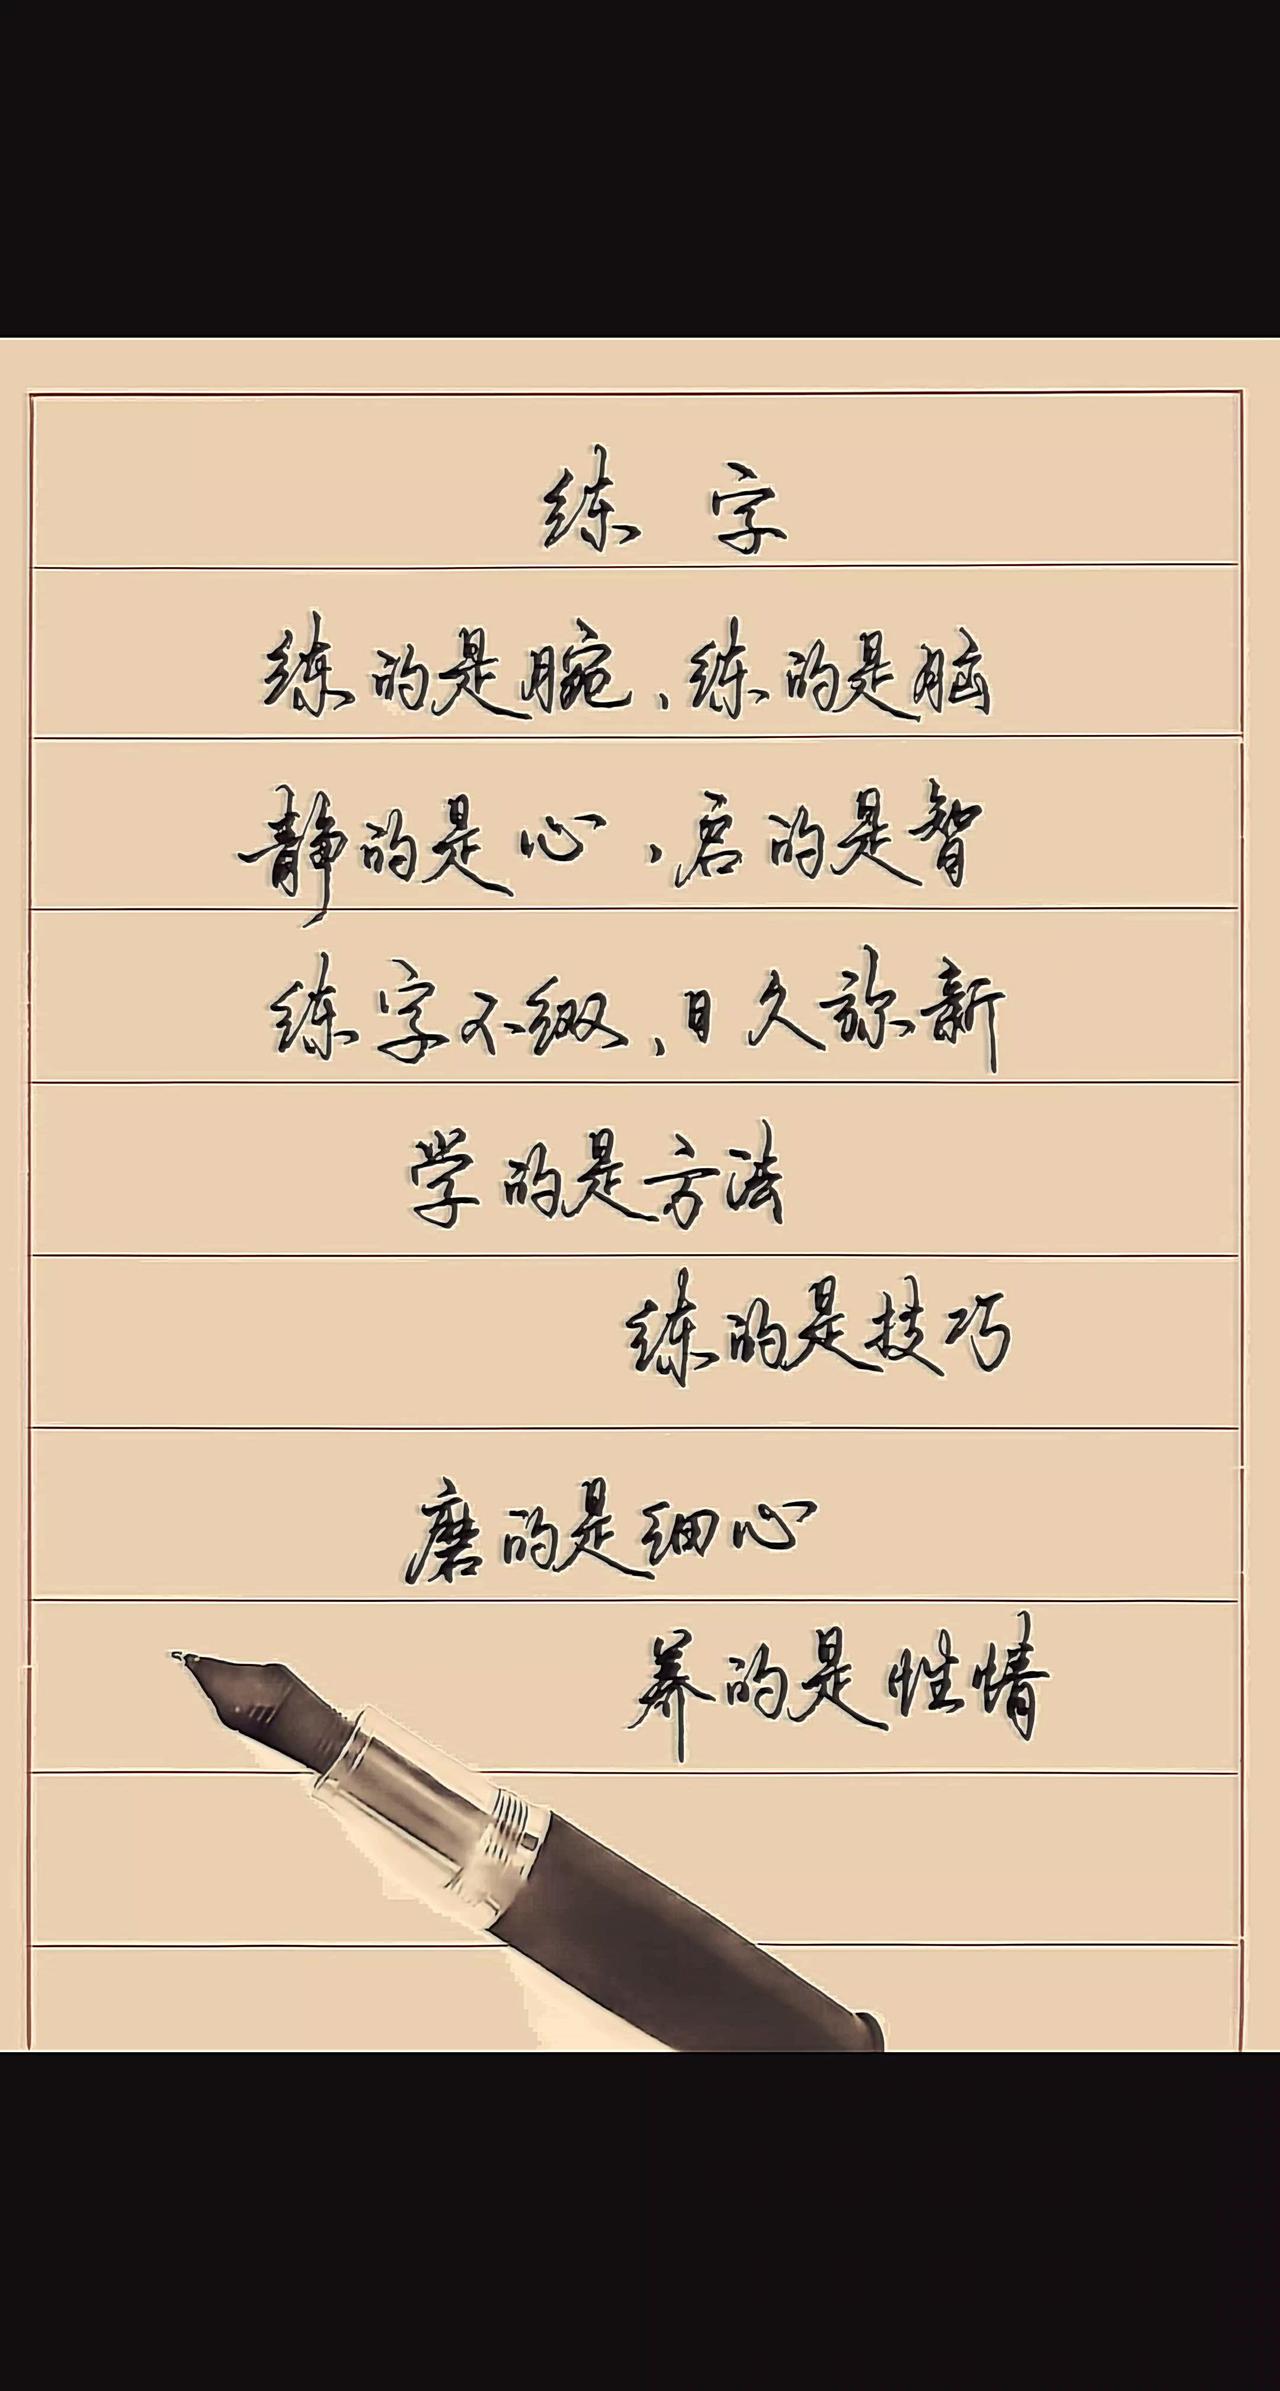 练字
练的是腕、练的是脑
静的是心，启的是智
练字不缀、日久弥新
学的是方法
练的是技巧
磨的是细心
养的是性情